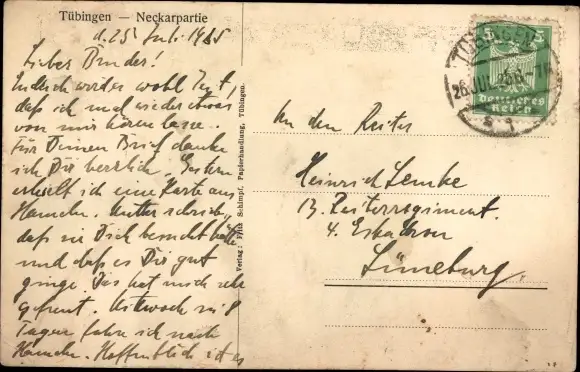 Tübingen — Neckarpartie
d. 25. Juli 1925
Lieber Bruder!
Endlich wird es wohl Zeit,
daß ich mal wieder etwas
von mir hören lasse.
Für Deinen Brief danke
ich Dir herzlich. Gestern
erhielt ich eine Karte aus
Hameln. Mutter schrieb,
daß sie Dich besucht hätte
und daß es Dir gut
ginge. Das hat mich sehr
gefreut. Mittwoch in 8
Tagen fahre ich nach
Hameln. Hoffentlich ist es
Verlag: Schimpf, Papierhandlung, Tübingen.
TÜBINGEN
26 JUL 25 6-7
5 5
Deutsches
Reich
An den Reiter
Heinrich Lemke
13. Reiterregiment.
4. Eskadron
Lüneburg.